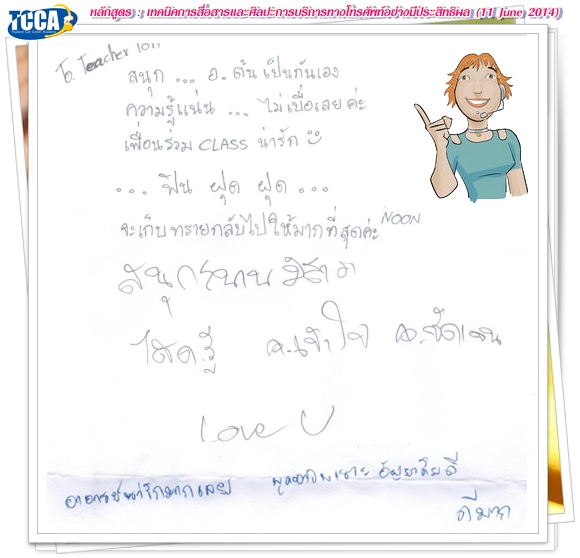 TCCA
Thailand Call Center Academy
หลักสูตร : เทคนิคการสื่อสารและศิลปะการบริการทางโทรศัพท์อย่างมีประสิทธิผล (11 June 2014)
To. Teacher Ton
สนุก ... อ. ต้น เป็นกันเอง
ความรู้แน่น ... ไม่เบื่อเลยค่ะ
เพื่อนร่วม CLASS น่ารัก
... ฟิน ฝุด ฝุด ...
จะเก็บทรายกลับไปให้มากที่สุดค่ะ NOON
สนุกสนาน
ได้ความรู้ เข้าใจ ชัดเจน
Love U
อาจารย์น่ารักมากเลย
ดีมาก